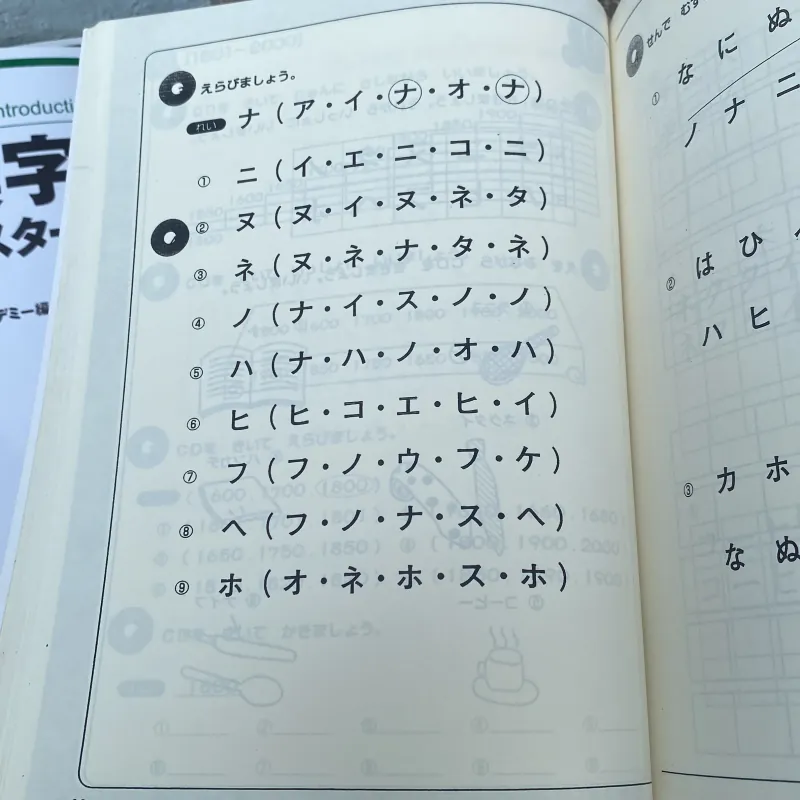 えらびましょう。
れい ナ（ア・イ・ナ・オ・ナ）
① ニ（イ・エ・ニ・コ・ニ）
② ヌ（ヌ・イ・ヌ・ネ・タ）
③ ネ（ヌ・ネ・ナ・タ・ネ）
④ ノ（ナ・イ・ス・ノ・ノ）
⑤ ハ（ナ・ハ・ノ・オ・ハ）
⑥ ヒ（ヒ・コ・エ・ヒ・イ）
⑦ フ（フ・ノ・ウ・フ・ケ）
⑧ ヘ（フ・ノ・ナ・ス・ヘ）
⑨ ホ（オ・ネ・ホ・ス・ホ）
せんで むす
① な に ぬ
ノ ナ ニ
② は ひ
ハ ヒ
③ カ ホ
な ぬ
字
スター
デミー編